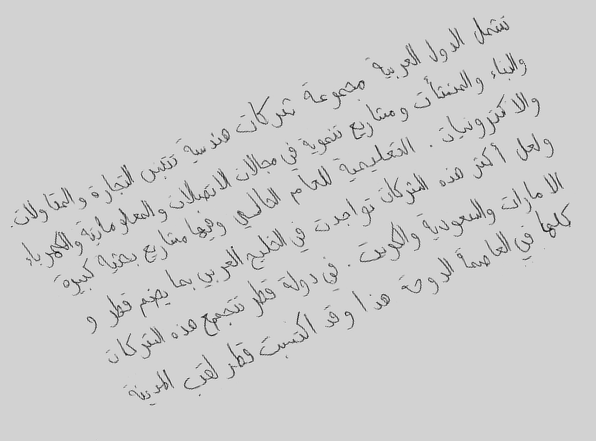 تشمل الدول العربية مجموعة شركات هندسية تتبنى التجارة والمقاولات.
والبناء والمنشأت ومشاريع تنموية في مجالات الاتصالات والمعلوماتية والكهرباء
والالكترونيات. التعليمية للعام الحالي وفيها مشاريع بحثية كبيرة
ولعل أكثر هذه الشركات تواجدت في الخليج العربي بما يضم قطر و
الامارات والسعودية والكويت. في دولة قطر تتجمع هذه الشركات
كلها في العاصمة الدوحة هذا وقد اكتسبت قطر لقب المدينة